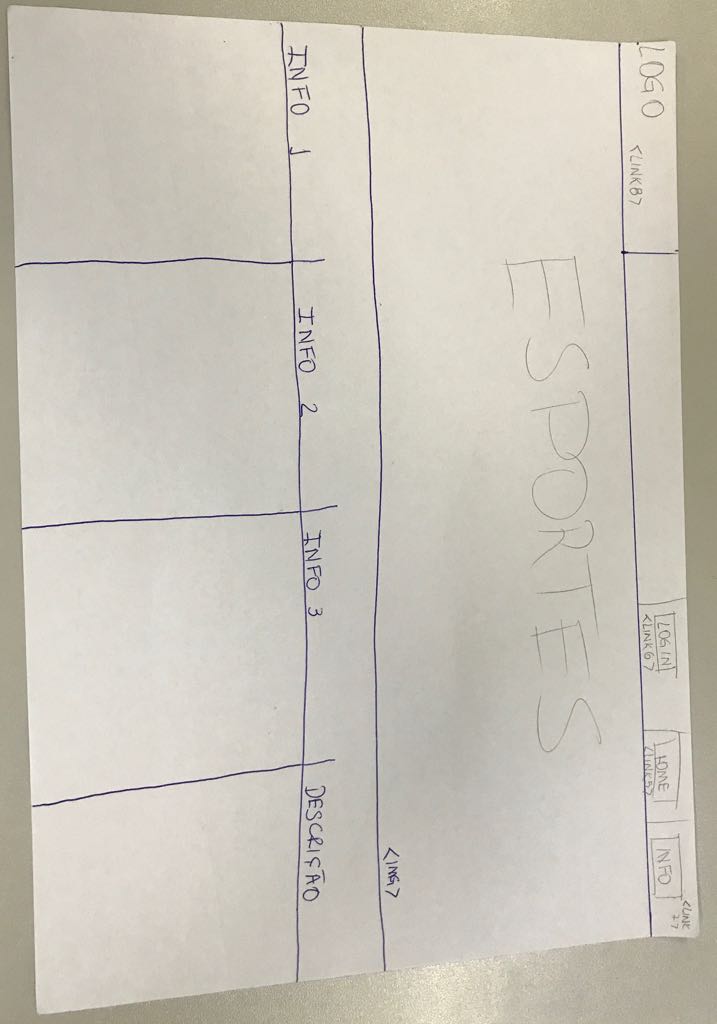 LOGO
<LINK8>
LOGIN
<LINK6>
HOME
<LINK5>
INFO
<LINK
7>
ESPORTES
<IMG>
INFO 1
INFO 2
INFO 3
DESCRIÇÃO